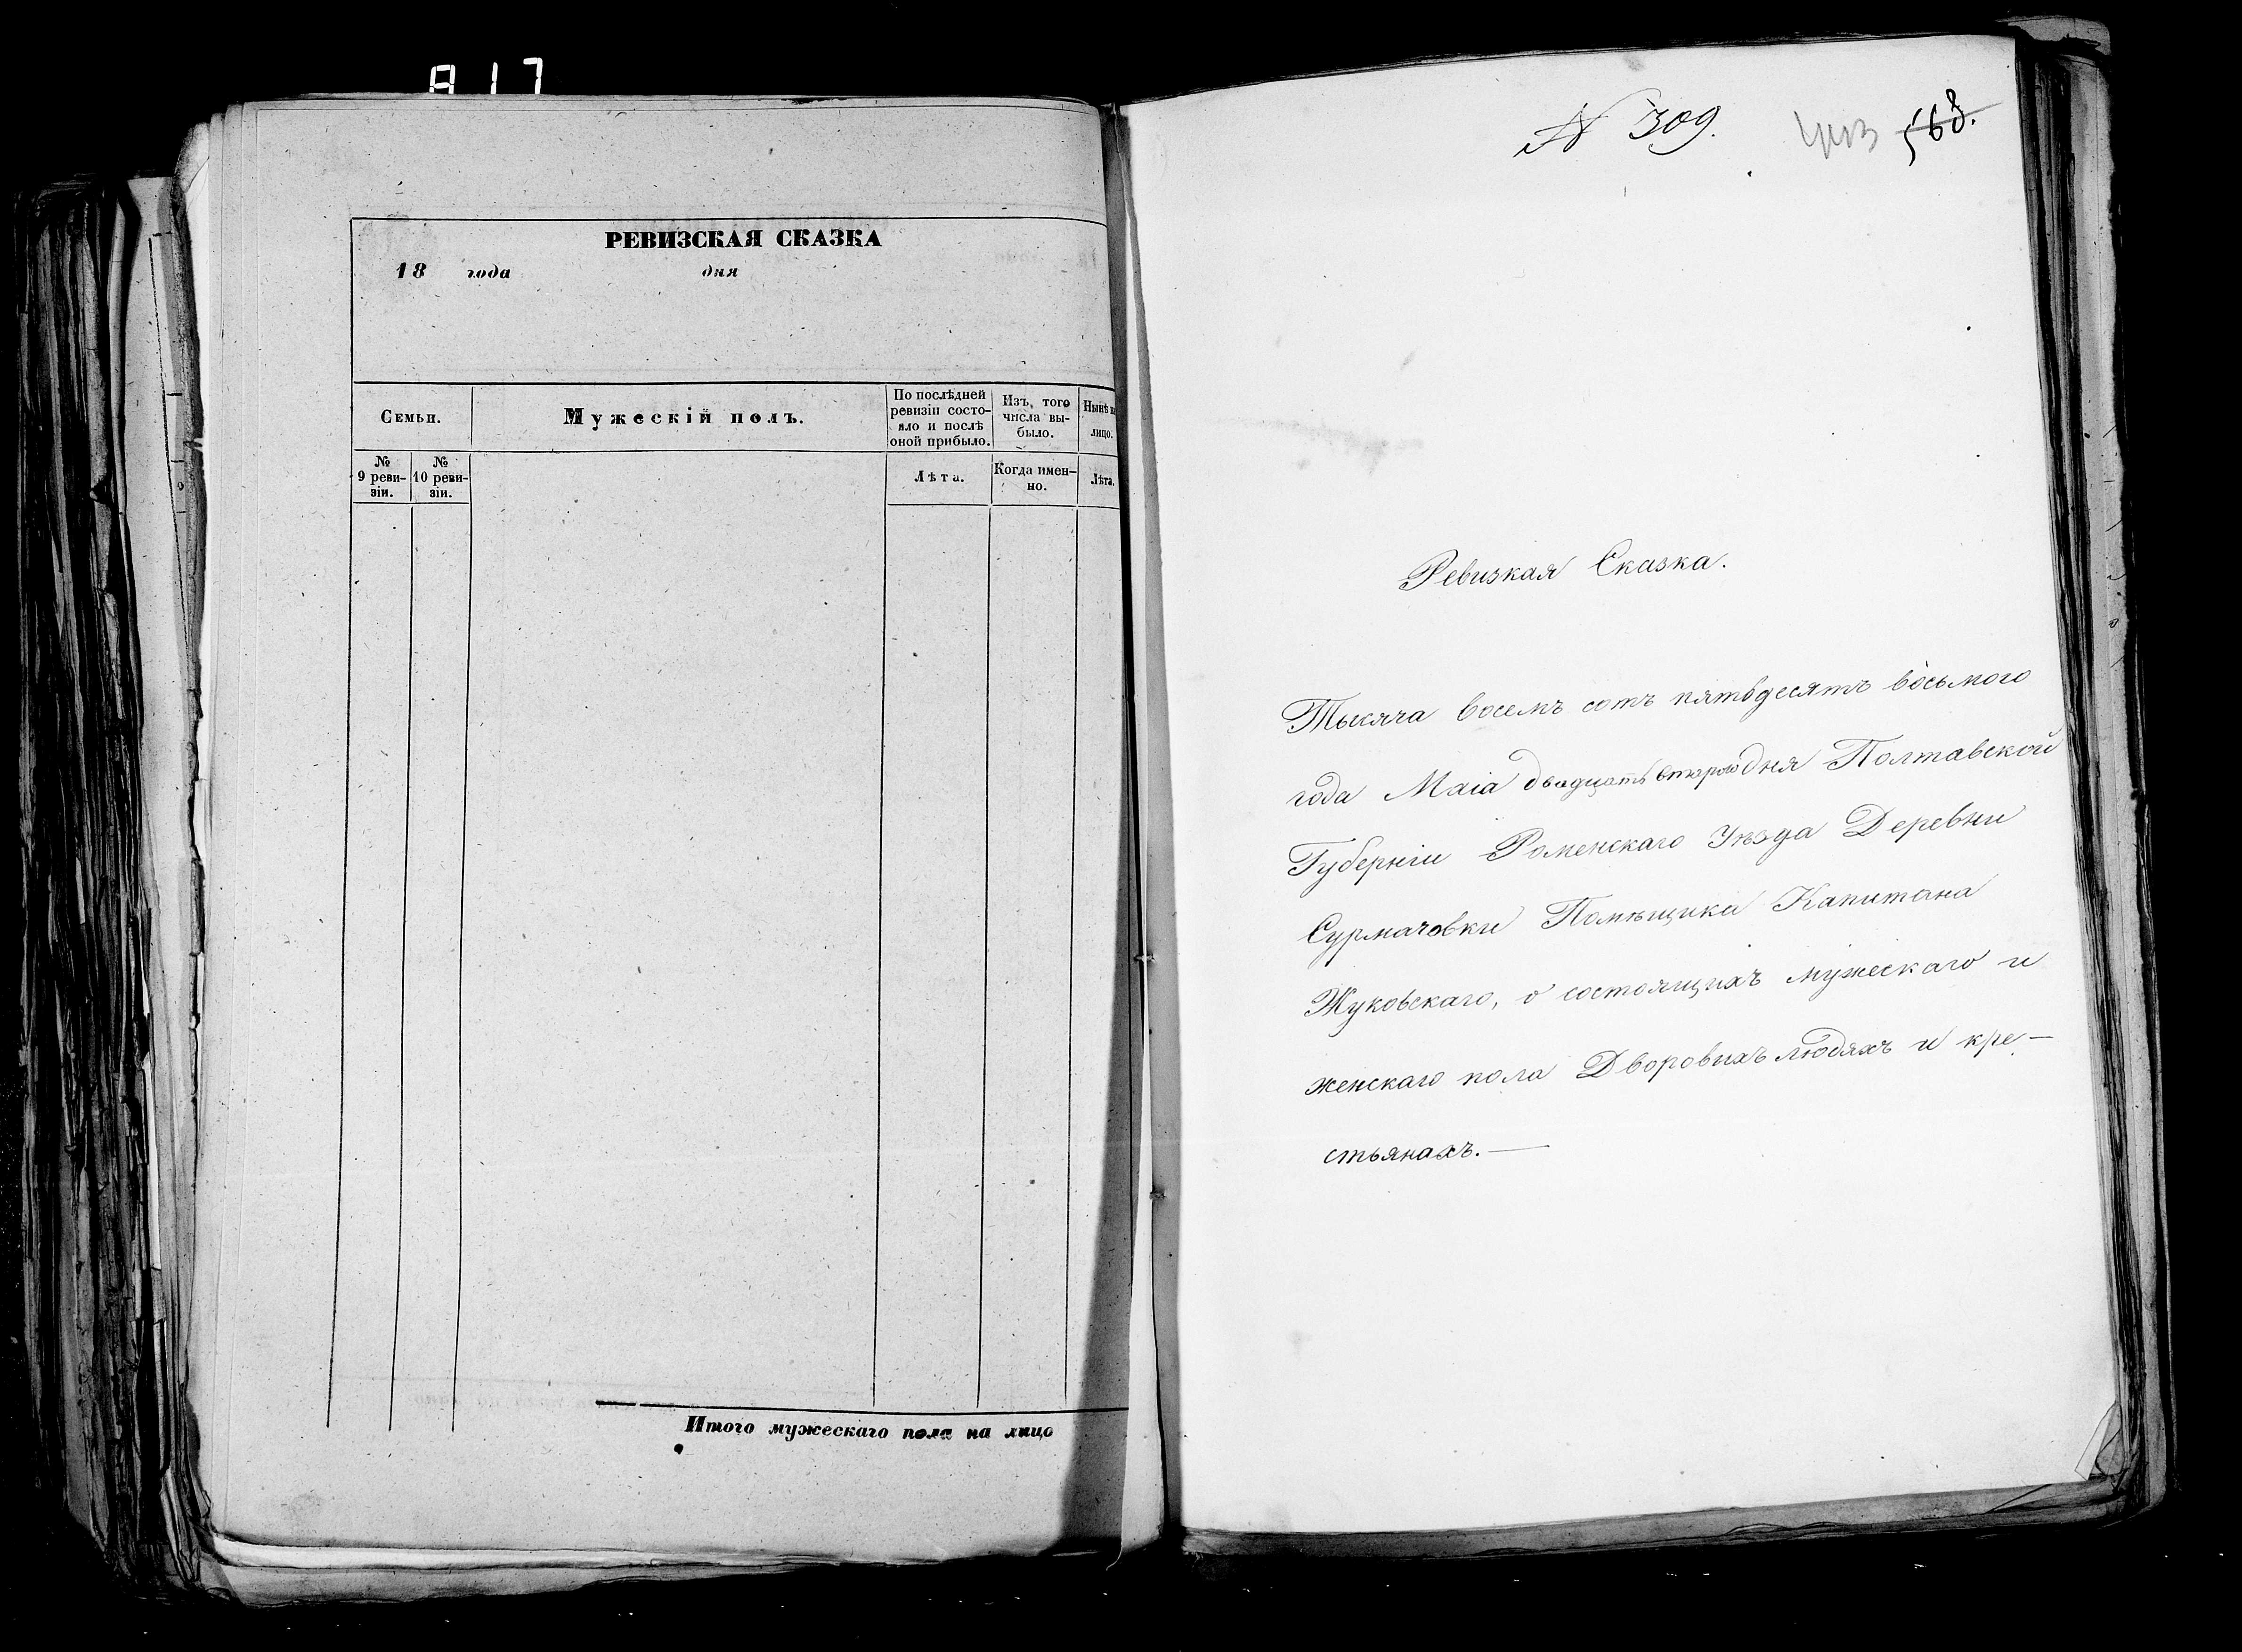 817
РЕВИЗСКАЯ СКАЗКА
18 года дня
Семьи.
Мужескій полъ.
По послѣдней
ревизіи состо-
яло и послѣ
оной прибыло.
Изъ того
числа вы-
было.
Нынѣ на
лицо.
№
9 реви-
зіи.
№
10 реви-
зіи.
Лѣта.
Когда имен-
но.
Лѣта.
Итого мужескаго пола на лицо
N 309. 568.
Ревизкая Сказка.
Тысяча восемъ сотъ пятьдесятъ восьмого
года Маіа двадцать второго дня Полтавской
Губерніи Роменскаго Уѣзда Деревни
Сурмачовки Помѣщика Капитана
Жуковскаго, о состоящихъ мужескаго и
женскаго пола Дворовихъ людяхъ и кре-
стьянахъ.—